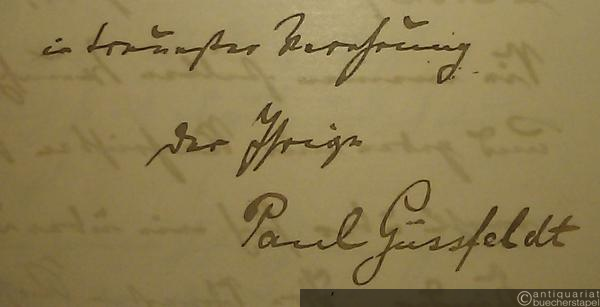 in treuester Verehrung
der Ihrige
Paul Güssfeldt
© antiquariat
buecherstapel